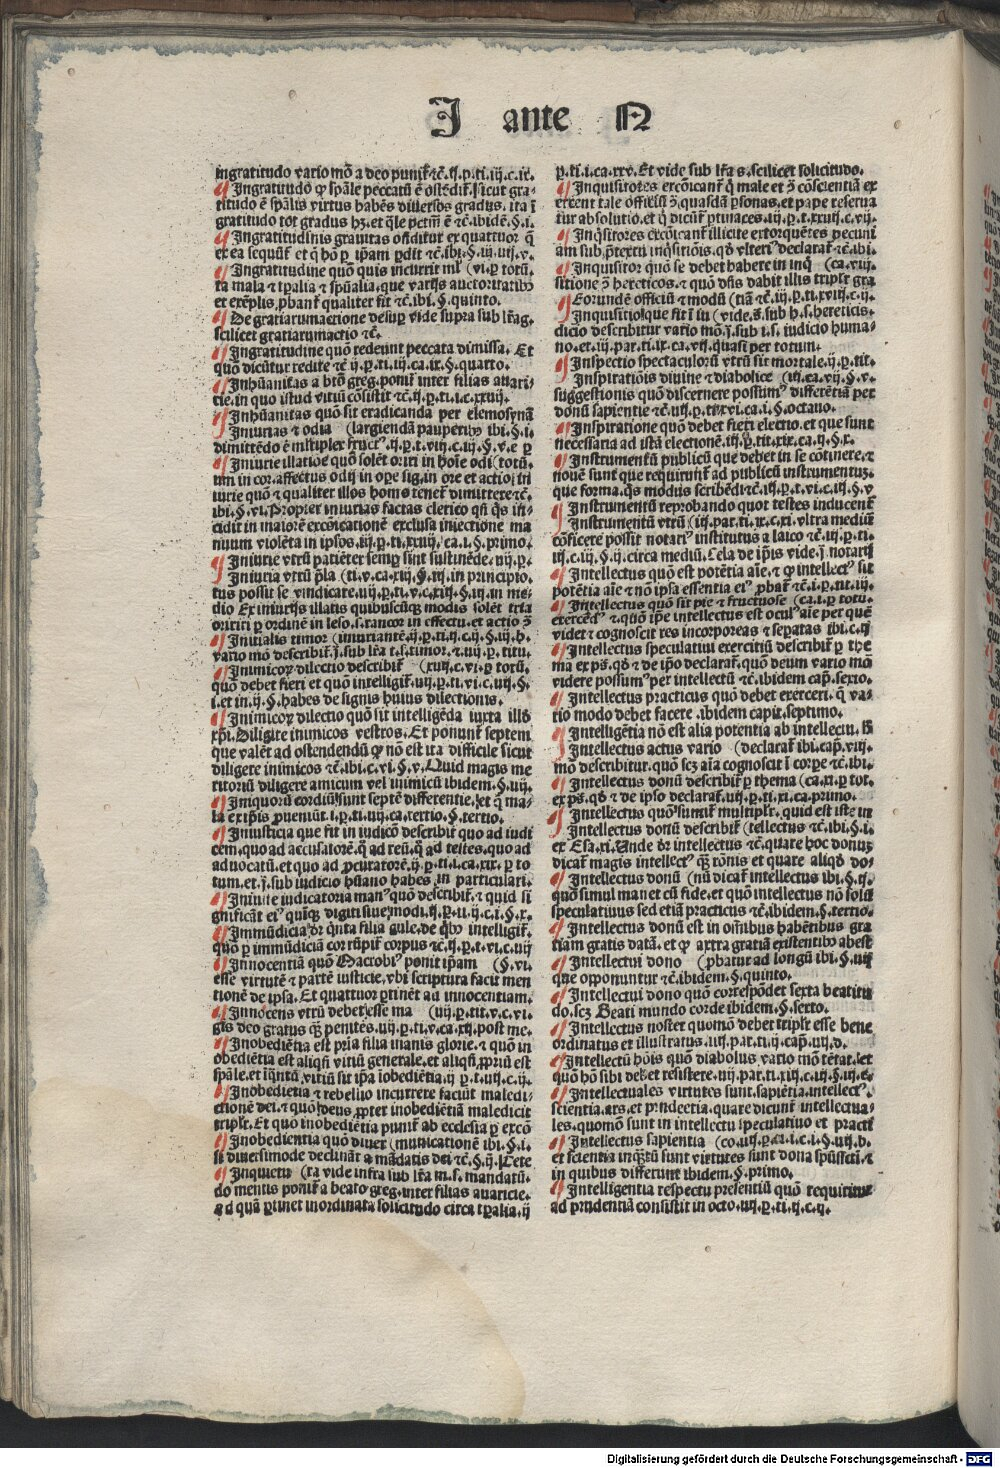 I ante N
ingratitudo vario mō a deo punit̄ ⁊c̄.ij.p.ti.iij.c.ix.
¶ Ingratitudo ꝙ spāle peccatū ē oñdit̄. sicut gra-
titudo ē spālis virtus habēs diversos gradus. ita ī
gratitudo tot gradus hꝫ. et q̄le pctm̄ ē ⁊c̄. ibidē. §.i.
¶ Ingratitudinis gravitas oñditur ex quattuor q̄
ex ea sequūt̄ et q̄ hō ꝑ ip̄am ꝑdit ⁊c̄. ibi. §.iij.iiij.v.
¶ Ingratitudine quō quis incurrit ml̓ (vi. ꝑ totū.
ta mala ⁊ tꝑalia ⁊ spūalia. que varijs auctoritatibꝰ
et exēplis ꝓbant̄ qualiter fit ⁊c̄. ibi §. quinto.
¶ De gratiarumactione desuꝑ vide supra sub lr̄a g.
scilicet gratiarumactio ⁊c̄.
¶ Ingratitudine quō redeunt peccata dimissa. Et
quō dicūtur redire ⁊c̄ ij.p.ti.iij.ca.ix.§. quarto.
¶ Inhūanitas a btō greg. ponit̄ inter filias avari-
tie. in quo istud vitiū cōsistit ⁊c̄.ij.p.ti.i.c.xxvij.
¶ Inhūanitas quō sit eradicanda per elemosynā
¶ Iniurias ⁊ odia (largiendā pauperibꝰ ibi §.i.
dimittēdo ē mltiplex fructꝰ.ij.p.ti.viij.c.iij.§.v.e p
¶ Iniurie illatiōe quō solēt oriri in hoīe odi (totū.
um in cor. affectus odij in oꝑe sig. in ore et actio ⁊ in
iurie quō ⁊ qualiter illos homo tenet̄ dimittere ⁊c̄.
ibi §.vi. Propter iniurias factas clerico qñ q̄s in-
cidit in maiorē excōicationē exclusa iniectione ma
nuum violēta in ipsos. iij.p.ti.xxiiij. ca.i.§. primo.
¶ Iniurie vtrū patiēter semꝑ sint sustinēde. iiij.p.
¶ Iniuria vtrū p̄la (ti.v.ca.xiij.§.iij. in principio.
tus possit se vindicare. iiij.p.ti.v.c.xiij.§.iij. in me-
dio Ex iniurijs illatis quibuscūqꝫ modis solēt tria
oriri ꝑ ordinē in leso. s. rancor in effectu. et actio ꝯ
¶ Initialis timor (iniuriantē.ij.p.ti.ij.c.ij.§.iij.h.
vario mō describit̄.j. sub lr̄a t. s. timor. ⁊ iiij.p. titu.
¶ Inimicoꝝ dilectio describit̄ (xiiij.c.vi. ꝑ totū.
quō debet fieri et quō intelligit̄. iiij.p.ti.vi.c.iiij.§.
i. et in.ij.§. habes de signis huius dilectionis.
¶ Inimicoꝝ dilectio quō sit intelligēda iuxta illd̄
xp̄i. Diligite inimicos vestros. Et ponunt̄ septem
que valēt ad ostendendū ꝙ nō est ita difficile sicut
diligere inimicos ⁊c̄. ibi. c.vi.§.v. Quid magis me
ritoriū diligere amicum vel inimicū ibidem. §.iiij.
¶ Iniquoꝝ cordiū sunt septē differentie. et q̄ ma-
la ex ip̄is ꝓueniūt. i.p.ti.iij.ca. tertio. §. tertio.
¶ Iniusticia que fit in iudicō describit̄ quo ad iudi
cem. quo ad accusatorē. q̄ ad reū. q̄ ad testes. quo ad
advocatū. et quo ad ꝓcuratorē.ij.p.ti.i.ca.xix. ꝑ to
tum. et.j. sub iudicio hūano habes in particulari.
¶ Iniuste iudicatoria manꝰ quō describit̄. ⁊ quid si
gnificāt eiꝰ quīqꝫ digiti siue modi.ij.p.ti.ij.c.i.§.x.
¶ Immūdicia dr̄ q̄nta filia gule. de q̄bꝰ intelligit̄.
quō ꝑ immūdiciā corrūpit̄ corpus ⁊c̄.ij.p.ti.vi.c.iiij
¶ Innocentiā quō Macrobiꝰ ponit ip̄am (§.vi.
esse virtutē ⁊ partē iusticie. vbi scriptura facit men
tionē de ipsa. Et quattuor ꝑtinēt ad innocentiam.
¶ Innocens vtrū debet esse ma (iiij.p.tit.v.c.vi.
gis deo gratus q̄ꝫ penitēs. iiij.p.ti.v.ca.xij. post me.
¶ Inobediētia est p̄ria filia inanis glorie. ⁊ quō in
obediētia est aliqñ vitiū generale. et aliqñ ꝓpriū est
spāle. et īq̄ntū vitiū sit ip̄a īobediētia.ij.p.t.iiij.c.ij.
¶ Inobediētia ⁊ rebellio incurrere faciūt maledi-
ctionē dei. ⁊ quō deus ꝓpter inobediētiā maledicit
tripl̓r. Et quō inobediētia punit̄ ab ecclesia ꝑ excō
¶ Inobedientia quō diver (municationē ibi. §.i.
si diversimode declināt a mādatis dei ⁊c̄. §.ij. Cete
¶ Inquietu (ra vide infra sub lr̄a m. s. mandatū.
do mentis ponit̄ a beato greg. inter filias avaricie.
ad quā ꝑtinet inordinata solicitudo circa tꝑalia. ij
p.ti.i.ca.xxv. Et vide sub lr̄a s. scilicet solicitudo.
¶ Inquisitores excōicant̄ q̄ male et ꝯ cōscientiā ex
ercent tale officiū ꝯ quasdā ꝑsonas. et pape reserva
tur absolutio. et q̄ dicūt̄ ꝑtinaces. iij.p.t.xxiiij.c.vij.
¶ Inq̄sitores excōicant̄ illicite extorquētes pecuni
am sub p̄textu inq̄sitiōis. qd̓ vlteriꝰ declarat̄ ⁊c̄. ibi.
¶ Inquisitor quō se debet habere in inq̄ (ca.viij.
sitione ꝯ hereticos. ⁊ quō dñs dabit illis tripl̓r gra
¶ Eorundē officiū ⁊ modū (tiā ⁊c̄. iij.p.ti.xviij.c.ij.
¶ Inquisitio que fit ī iu (vide. s̄. sub h. s. hereticis.
dicio describitur vario mō. j. sub i. s. iudicio huma-
no. et. iij.par.ti.ix.ca.vij. quasi per totum.
¶ Inspectio spectaculorū vtrū sit mortale. ij.p. tit.
¶ Inspirationis divine ⁊ diabolice (iij.ca.vij.§.v.
suggestionis quō discernere possumꝰ differētiā per
donū sapientie ⁊c̄. iiij.p.ti.xvi.ca.i.§. octavo.
¶ Inspiratione quō debet fieri electio. et que sunt
necessaria ad istā electionē. iij.p.tit.xix.ca.ij.§.x.
¶ Instrumentū publicū que debet in se cōtinere. ⁊
nouē sunt que requirunt̄ ad publicū instrumentuꝫ.
que forma. q̄s modus scribēdi ⁊c̄. iij.p.t.vi.c.iij.§.v
¶ Instrumentū reprobando quot testes inducent̄
¶ Instrumentū vtrū (iij.par.ti.ix.c.xi. vltra mediū
cōficere possit notariꝰ institutus a laico ⁊c̄. iij.p.ti.
iij.c.iij.§.ij. circa mediū. Cetera de ip̄is vide. j. notarij
¶ Intellectus quō est potētia aīe. ⁊ ꝙ intellectꝰ sit
potētia aīe ⁊ nō ipsa essentia eiꝰ ꝓbat̄ ⁊c̄. i.p.tit.iij.
¶ Intellectus quō sit pie ⁊ fructuose (ca.i. ꝑ totū.
exercēdꝰ ⁊ quō ip̄e intellectus est oculꝰ aīe per quē
videt ⁊ cognoscit res incorporeas ⁊ seꝑatas ibi.c.ij
¶ Intellectus speculativi exercitiū describit̄ ꝑ the
ma ex ps̄. qd̓ ⁊ de ip̄o declarat̄. quō deum vario mō
videre possumꝰ per intellectū ⁊c̄. ibidem cap̄. sexto.
¶ Intellectus practicus quō debet exerceri. q̄ va-
rio modo debet facere. ibidem capit. septimo.
¶ Intelligētia nō est alia potentia ab intellectu. s̓
¶ Intellectus actus vario (declarat̄ ibi. cap̄. viij.
mō describitur. quō scꝫ aīa cognoscit ī corꝑe ⁊c̄. ibi.
¶ Intellectus donū describit̄ ꝑ thema (ca.ij. ꝑ tot.
ex ps̄. qd̓ ⁊ de ipso declarat̄. iiij.p.ti.xi.ca. primo.
¶ Intellectus quō sumit̄ multipl̓r. quid est iste in
¶ Intellectus donū describit̄ (tellectus ⁊c̄. ibi. §.i.
ex Esa. xi. Vnde dr̄ intellectus ⁊c̄. quare hoc donuꝫ
dicat̄ magis intellectꝰ q̄ꝫ rōnis et quare aliqd̓ do-
¶ Intellectus donū (nū dicat̄ intellectus ibi. §.ij.
quō simul manet cū fide. et quō intellectus nō solū
speculativus sed etiā practicus ⁊c̄. ibidem. §. tertio.
¶ Intellectus donū est in oīmbus habentibus gra
tiam gratis datā. et ꝙ extra gratiā existentibꝰ abest
¶ Intellectui dono (ꝓbatur ad longū ibi. §.iiij
que opponuntur ⁊c̄. ibidem. §. quinto.
¶ Intellectui dono quō correspōdet sexta beatitu
do. scꝫ Beati mundo corde ibidem. §. sexto.
¶ Intellectus noster quomō debet tripl̓r esse bene
ordinatus et illustratus. iiij.par.ti.ij.cap̄.iij.d.
¶ Intellectū hōis quō diabolus vario mō tētat. et
quō hō sibi debet resistere. iij.par.ti.xiij.c.iij.§.iij.e.
¶ Intellectuales virtutes sunt. sapiētia. intellectꝰ.
scientia. ars. et prudeētia. quare dicunt̄ intellectua-
les. quomō sunt in intellectu speculativo et practi
¶ Intellectus sapientia (co. iiij.p.ti.i.c.i.§.iiij.b.
et scientia inq̄ntū sunt virtutes sunt dona spūssc̄ti. ⁊
in quibus differunt ibidem. §. primo.
¶ Intelligentia respectu presentiū quō requiritur
ad prudentiā consistit in octo. iiij.p.ti.ij.c.ij.
Digitalisierung gefördert durch die Deutsche Forschungsgemeinschaft - DFG